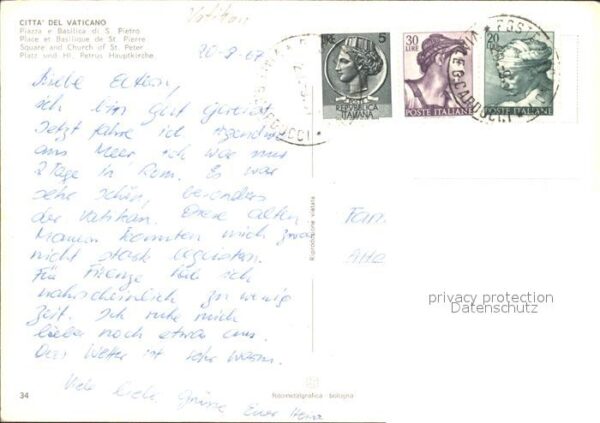 CITTA' DEL VATICANO
Piazza e Basilica di S. Pietro
Place et Basilique de St. Pierre
Square and Church of St. Peter
Platz und Hl. Petrus Hauptkirche
Vatikan
20-9-67
LIRE 5
POSTE
REPUBBLICA
ITALIANA
30
LIRE
POSTE ITALIANE
20
POSTE ITALIANE
E.G-CARDUCCI
Liebe Eltern,
ich bin gut gereist.
Jetzt fahre ich irgendwo
ans Meer. Ich war nur
2 Tage in Rom. Es war
sehr schön, besonders
der Vatikan. Diese alten
Mauern konnten mich zwar
nicht stark begeistern.
Für Firenze hab ich
wahrscheinlich zu wenig
Zeit. Ich ruhe mich
lieber noch etwas aus.
Das Wetter ist sehr warm.
Viele liebe Grüsse Euer
Fam.
Riproduzione vietata
privacy protection
Datenschutz
34
fotometalgrafica - bologna